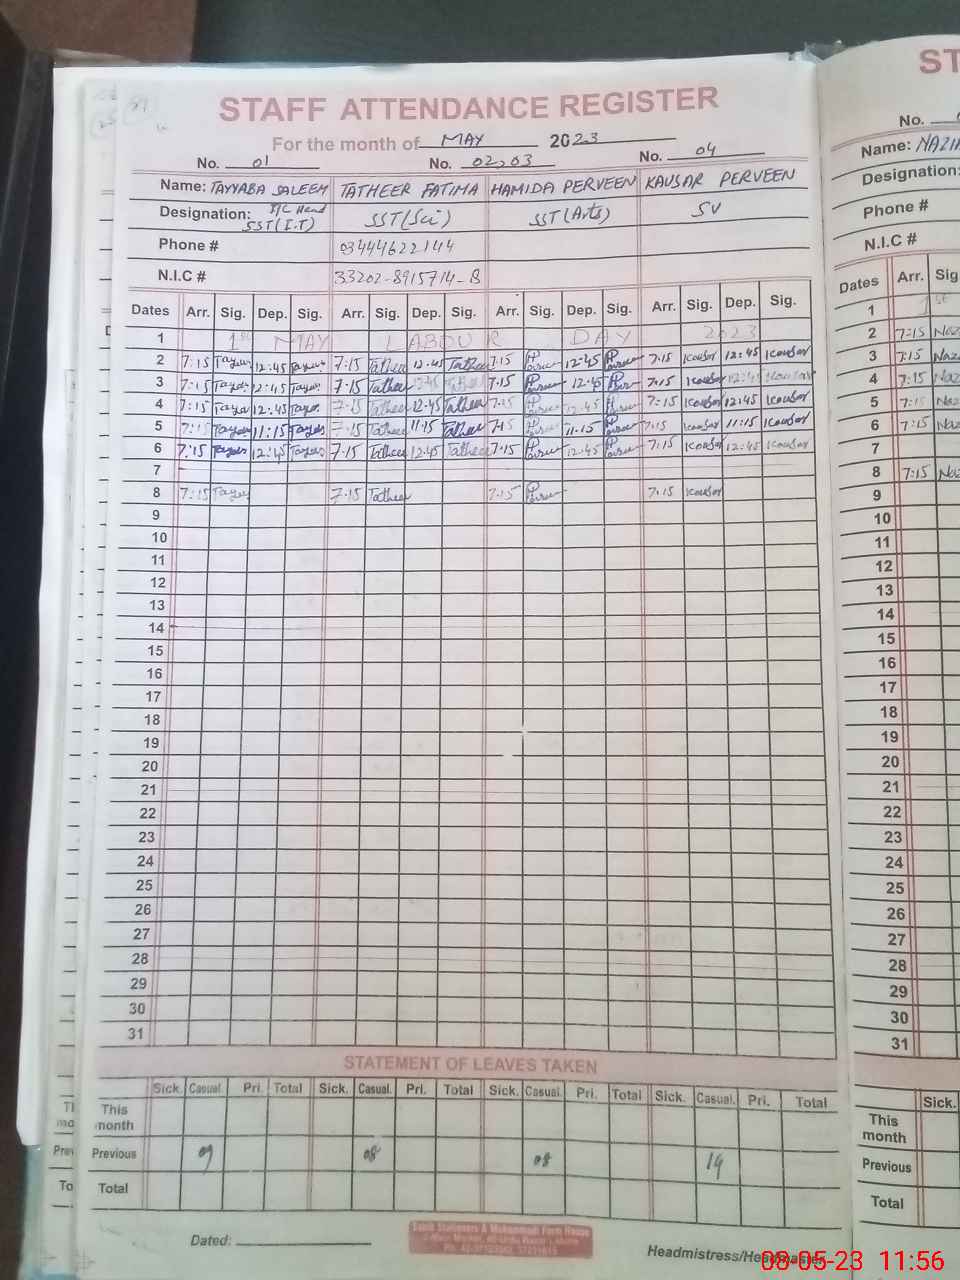 STAFF ATTENDANCE REGISTER
For the month of MAY 2023
No. 01 No. 02,03 No. 04
Name: TAYYABA SALEEM TATHEER FATIMA HAMIDA PERVEEN KAUSAR PERVEEN
Designation: I/C Head SST(I.T) SST(Sci) SST(Arts) SV
Phone # 03444622144
N.I.C # 33202-8915714-8
Dates Arr. Sig. Dep. Sig. Arr. Sig. Dep. Sig. Arr. Sig. Dep. Sig. Arr. Sig. Dep. Sig.
1 1st MAY LABOUR DAY 2023
2 7:15 12:45 7:15 Tatheer 12:45 Tatheer 7:15 12:45 7:15 Kousar 12:45 Kousar
3 7:15 12:45 7:15 Tatheer 12:45 Tatheer 7:15 12:45 7:15 Kousar 12:45 Kousar
4 7:15 12:45 7:15 Tatheer 12:45 Tatheer 7:15 12:45 7:15 Kousar 12:45 Kousar
5 7:15 11:15 7:15 Tatheer 11:15 Tatheer 7:15 11:15 7:15 Kousar 11:15 Kousar
6 7:15 12:45 7:15 Tatheer 12:45 Tatheer 7:15 12:45 7:15 Kousar 12:45 Kousar
7
8 7:15 7:15 Tatheer 7:15 7:15 Kousar
9
10
11
12
13
14
15
16
17
18
19
20
21
22
23
24
25
26
27
28
29
30
31
STATEMENT OF LEAVES TAKEN
Sick. Casual. Pri. Total Sick. Casual. Pri. Total Sick. Casual. Pri. Total Sick. Casual. Pri. Total
This month
Previous 09 08 08 19
Total
Dated:
Headmistress/Headmaster
ST
No.
Name: NAZI
Designation:
Phone #
N.I.C #
Dates Arr. Sig
1 1st
2 7:15 Naz
3 7:15 Naz
4 7:15 Naz
5 7:15 Naz
6 7:15 Naz
7
8 7:15 Naz
9
10
11
12
13
14
15
16
17
18
19
20
21
22
23
24
25
26
27
28
29
30
31
Sick.
This month
Previous
Total
08-05-23 11:56